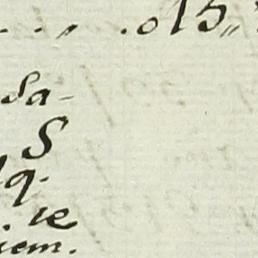 . . , .015,,
Sa-
S
q.
ie
iem.